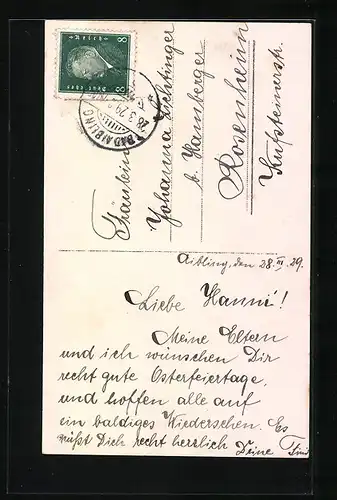 8 Deutsches Reich 8
BAD AIBLING
28.3.29.
Fräulein
Johanna
b. Hamberger
Rosenheim
Kufsteinerstr.
Aibling, den 28. III. 29.
Liebe Hanni!
Meine Eltern
und ich wünschen Dir
recht gute Osterfeiertage,
und hoffen alle auf
ein baldiges Wiedersehen. Es
grüßt Dich recht herzlich Deine